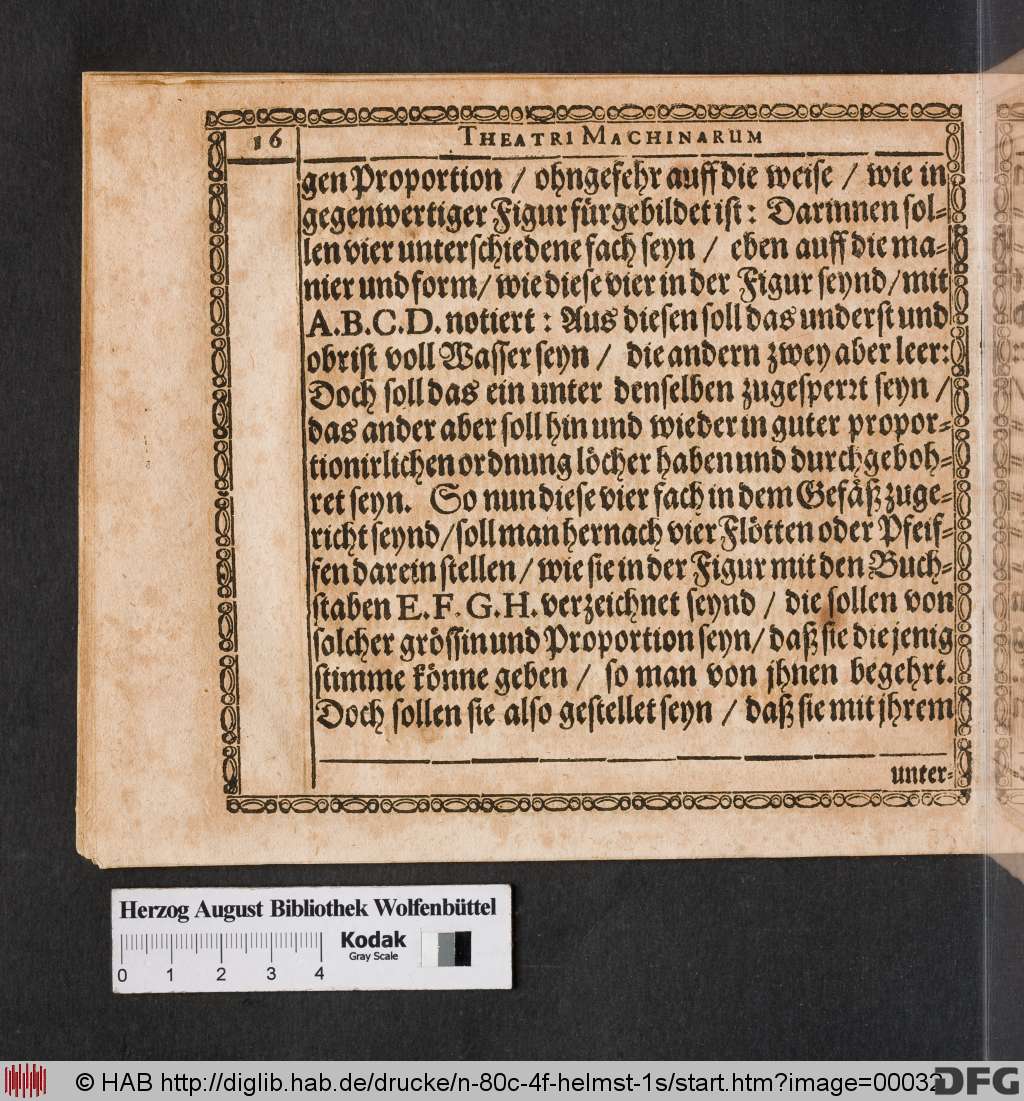 16
THEATRI MACHINARUM
gen Proportion / ohngefehr auff die weise / wie in
gegenwertiger Figur fürgebildet ist : Darinnen sol-
len vier unterschiedene fach seyn / eben auff die ma-
nier und form / wie diese vier in der Figur seynd / mit
A.B.C.D. notiert : Aus diesen soll das underst und
obrist voll Wasser seyn / die andern zwey aber leer:
Doch soll das ein unter denselben zugesperrt seyn /
das ander aber soll hin und wieder in guter propor-
tionirlichen ordnung löcher haben und durchgeboh-
ret seyn. So nun diese vier fach in dem Gefäß zuge-
richt seynd / soll man hernach vier Flötten oder Pfeif-
fen darein stellen / wie sie in der Figur mit den Buch-
staben E.F.G.H. verzeichnet seynd / die sollen von
solcher grössin und Proportion seyn / daß sie die jenig
stimme könne geben / so man von jhnen begehrt.
Doch sollen sie also gestellet seyn / daß sie mit jhrem
unter-
Herzog August Bibliothek Wolfenbüttel
Kodak
Gray Scale
0 1 2 3 4
© HAB http://diglib.hab.de/drucke/n-80c-4f-helmst-1s/start.htm?image=00032
DFG